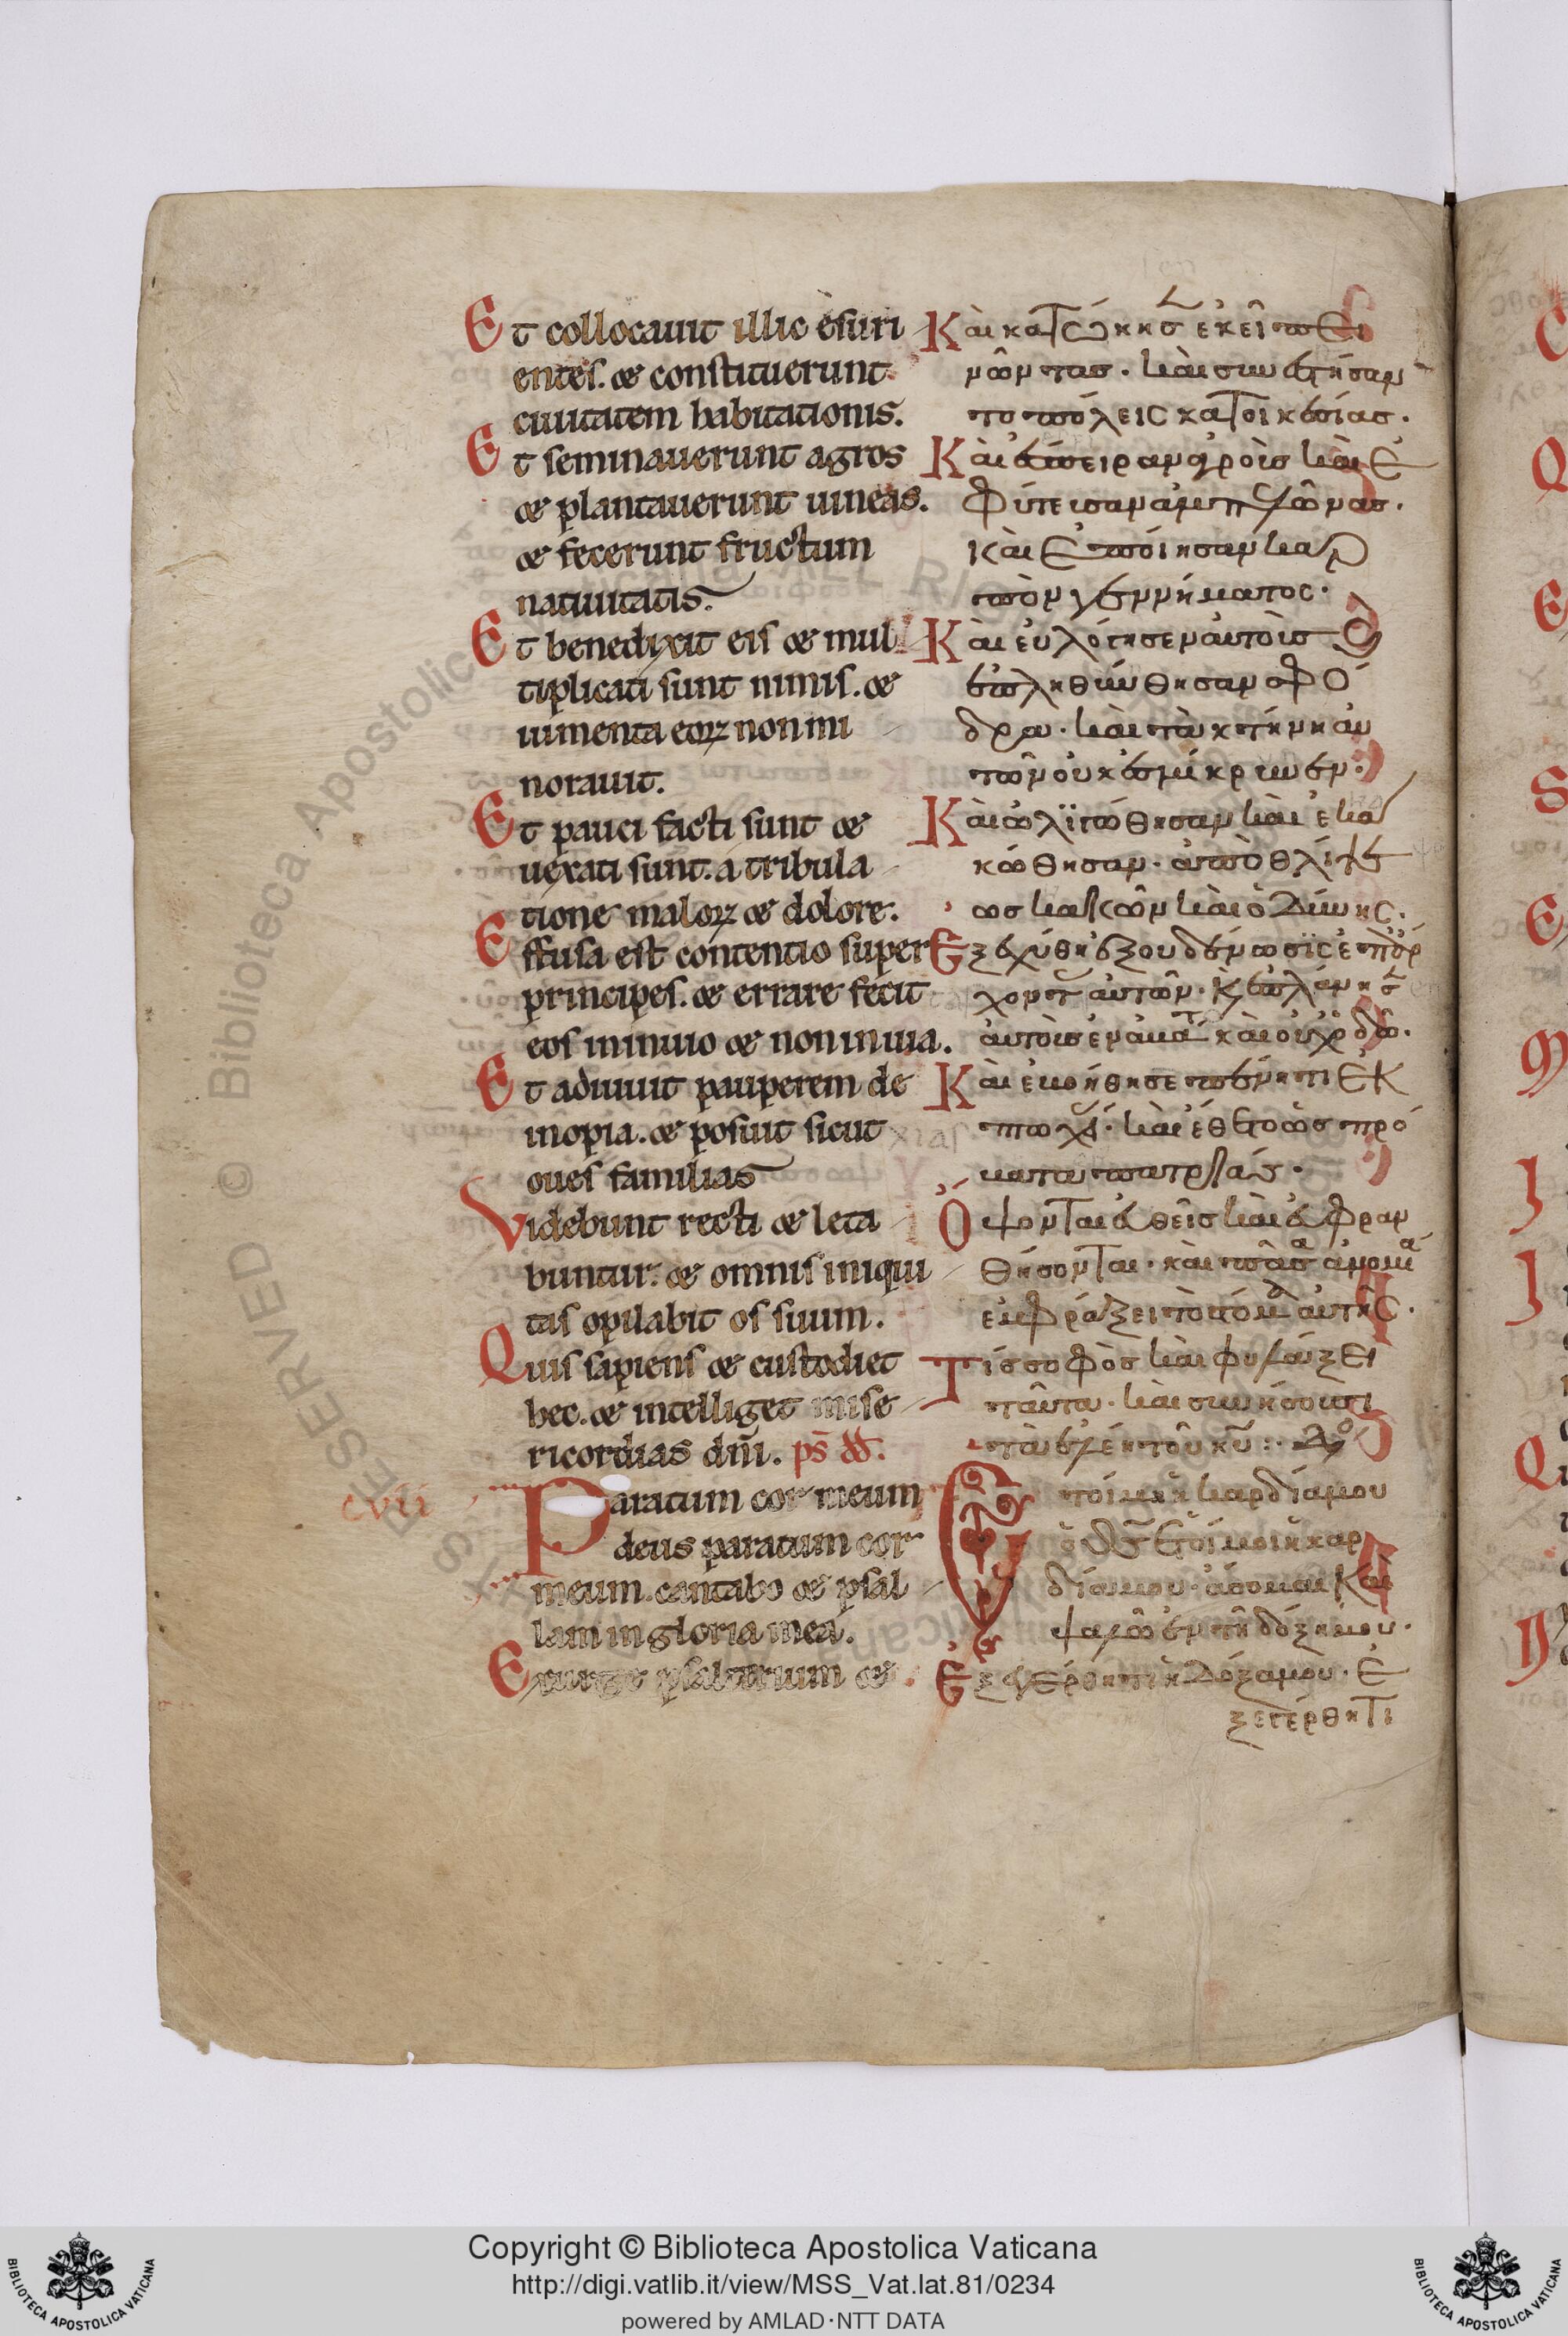 Et collocauit illic esuri
entes. & constituerunt
ciuitatem habitationis.
Et seminauerunt agros
& plantauerunt uineas.
& fecerunt fructum
natiuitatis.
Et benedixit eis & mul
tiplicati sunt nimis. &
iumenta eoꝝ non mi
norauit.
Et pauci facti sunt &
uexati sunt. a tribula
tione maloꝝ & dolore.
Effusa est contentio super
principes. & errare fecit
eos in inuio & non in uia.
Et adiuuit pauperem de
inopia. & posuit sicut
oues familias
Videbunt recti & leta
buntur. & omnis iniqui
tas opilabit os suum.
Quis sapiens & custodiet
hec. & intelliget mise
ricordias dñi. ps̄ dd.
cvii
Paratum cor meum
deus paratum cor
meum. cantabo & psal
lam in gloria mea.
Exurge psalterium &
Κὰι κατώκησ̄ ἐκεῖ πει
νῶντας. κὰι συνεστήσαν
το πόλεις κατοικεσίας.
Κὰι ἔσπειραν ἀγροὶς κὰι ἐ
φύτευσαν ἀμπελῶνας.
κὰι ἐποίησαν καρ
πὸν γεννήματος.
Κὰι ἐυλόγησεν ἀυτοὶς
ἐπληθύνθησαν σφό
δρα. κὰι τὰ κτήνη ἀυ
τῶν ὀυκ ἐσμίκρυνεν.
Κὰι ὠλϊγώθησαν κὰι ἐκα
κώθησαν. ἀπὸ θλίψε
ως κακῶν κὰι ὀδύνης.
Ἐξεχύθη ἐξουδένωσϊς ἐπ ἄρ
χοντ ἀυτῶν. κ ἐπλάνησ̄
ἀυτοὶς ἐν ἀβάτ κὰι ὀυχ ὁδῶ.
Κὰι ἐβοήθησε πένητι ἐκ
πτωχεί. κὰι ἔθετο ὡς πρό
βατα πατριάς.
Ὄψονται ἐυθεῖς κὰι ἐυφραν
θήσονται. κὰι πᾶσα ἀνομία
ἐμφράξει τὸ στόμα ἀυτῆς.
Τίς σοφὸς κὰι φυλάξει
ταῦτα. κὰι συνήσουσι
τὰ ἐλέη τοῦ κῡ :.
Ἑτοίμη ἡ καρδία μου
ὁ θς̄ ἑτοίμοι ἡ καρ
δία μου. ἄσομαι κὰι
ψαλῶ ἐν τῆ δόξη μου.
Ἐξεγέρθητι ἡ δόξα μὸυ. ἐ
ξεγέρθητι
Copyright © Biblioteca Apostolica Vaticana
http://digi.vatlib.it/view/MSS_Vat.lat.81/0234
powered by AMLAD·NTT DATA
BIBLIOTECA APOSTOLICA VATICANA
BIBLIOTECA APOSTOLICA VATICANA